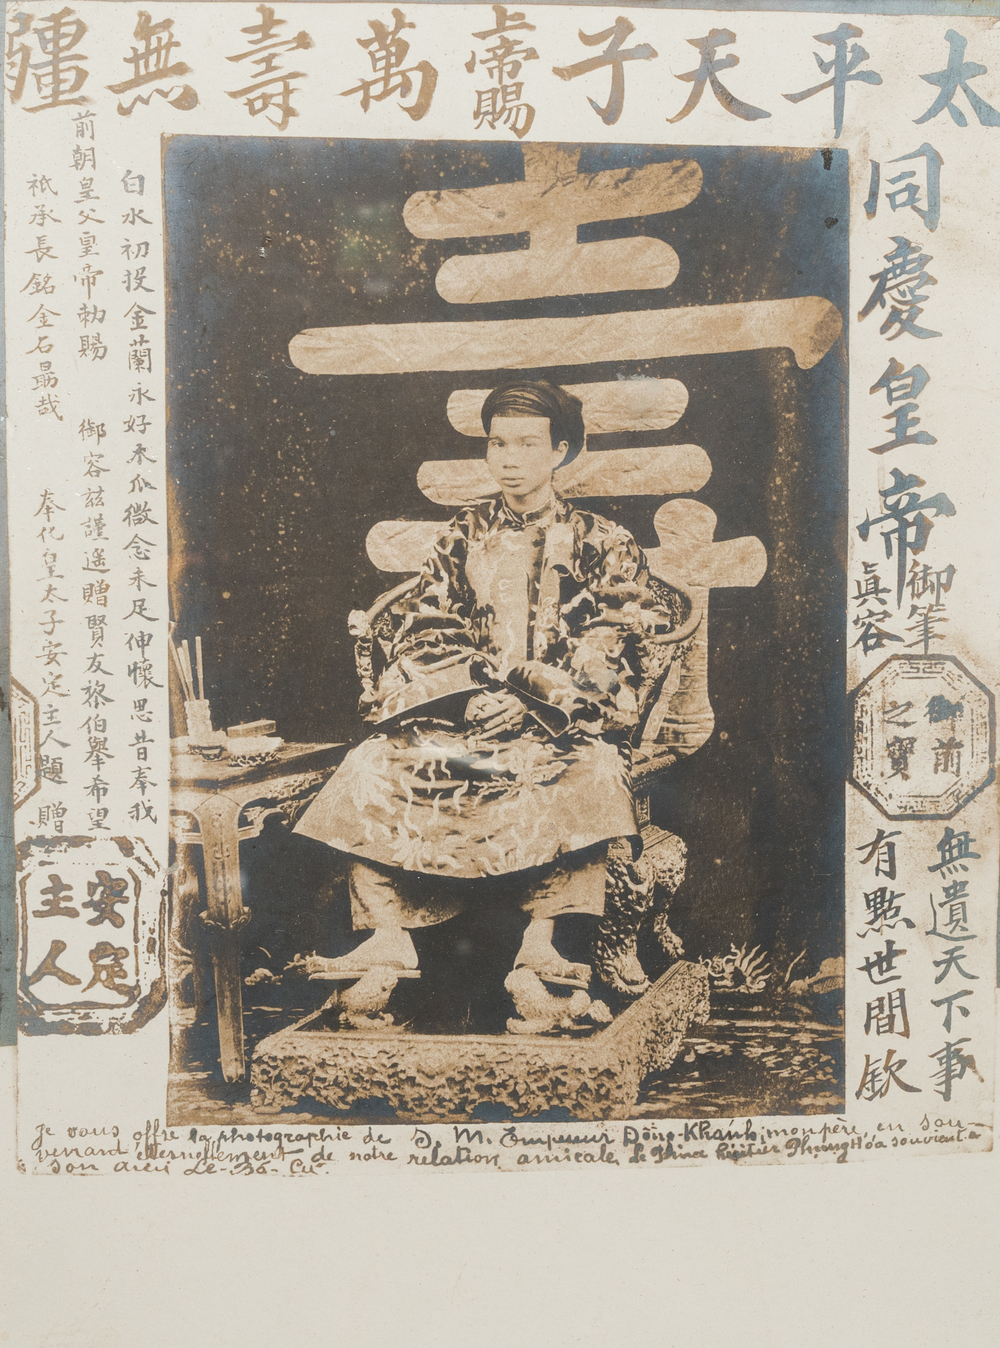 太平天子上帝賜萬壽無疆
同慶皇帝
御筆
眞容
御前
之寶
無遺天下事
有點世間欽
白水初投金蘭永好木瓜微念未足伸懷思昔奉我
前朝皇父皇帝勅賜 御容玆謹遥贈賢友黎伯舉希望
祇承長銘金石最哉 奉化皇太子安定主人題 贈
安定
主人
je vous offre la photographie de S. M. Empereur Đồng-Khánh, mon père, en sou-
venant éternellement de notre relation amicale. Le Prince héritier Phụng Hóa souvient à
son
Lê-Bá-Cử.